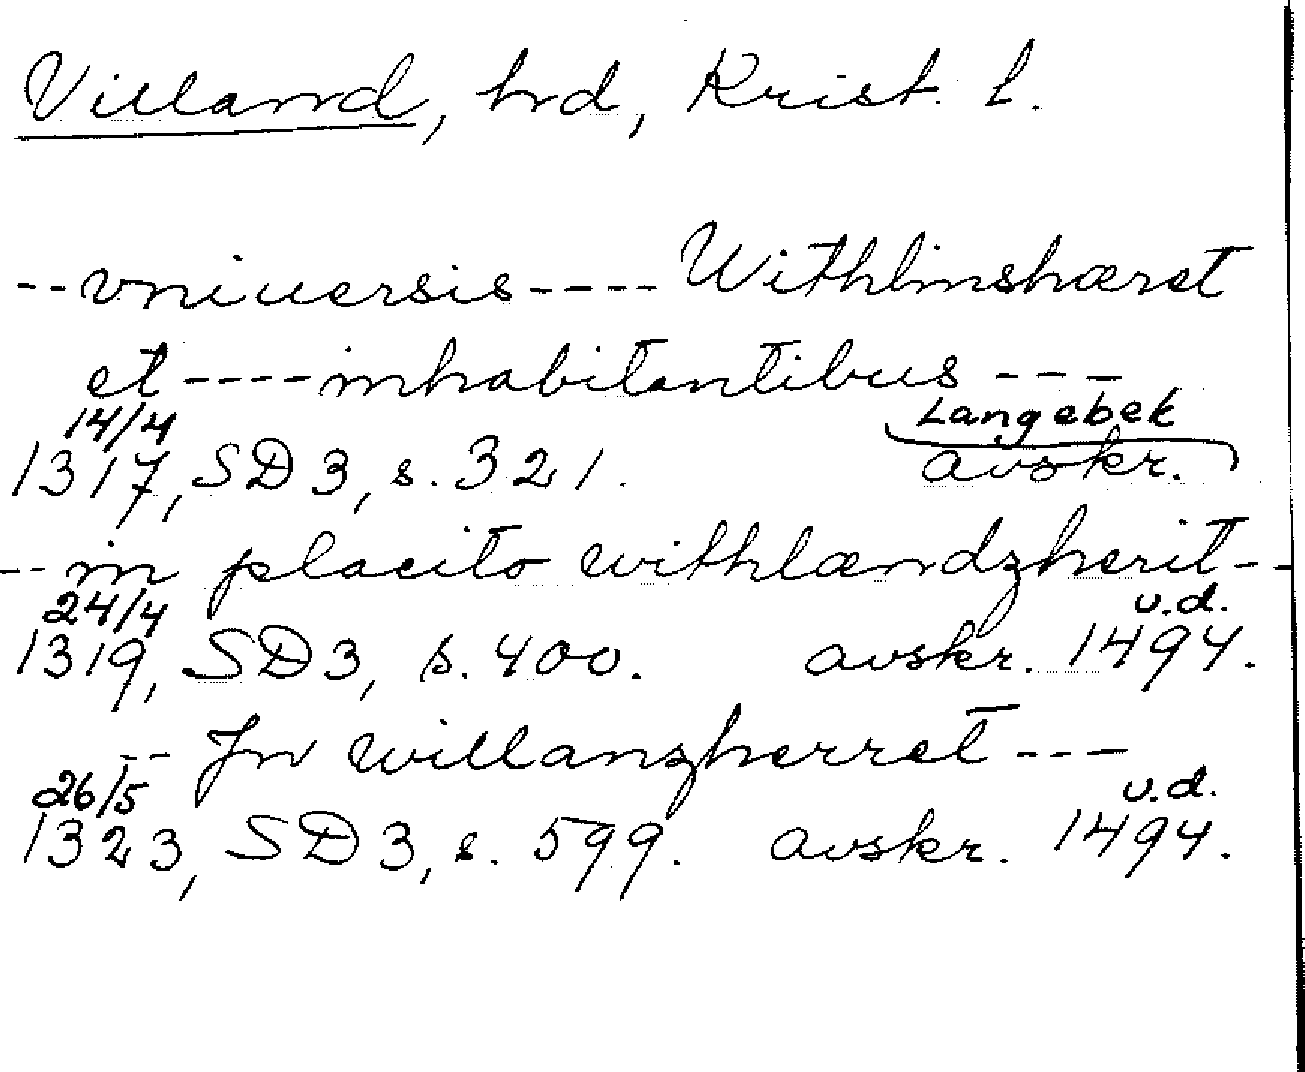 Villand, hrd, Krist. l.
-- vniuersis ---- Withlinshæret
et ---- inhabitantibus ---
14/4 Langebek
1317, SD 3, s. 321. avskr.
-- in placito withlændzherit --
24/4 u.d.
1319, SD 3, s. 400. avskr. 1494.
-- Jn willanzherret ---
26/5 u.d.
1323, SD 3, s. 599. avskr. 1494.